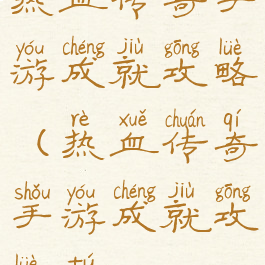 热血传奇手
yóu chéng jiù gōng lüè
游成就攻略
rè xuě chuán qí
（热血传奇
shǒu yóu chéng jiù gōng
手游成就攻
lüè tú